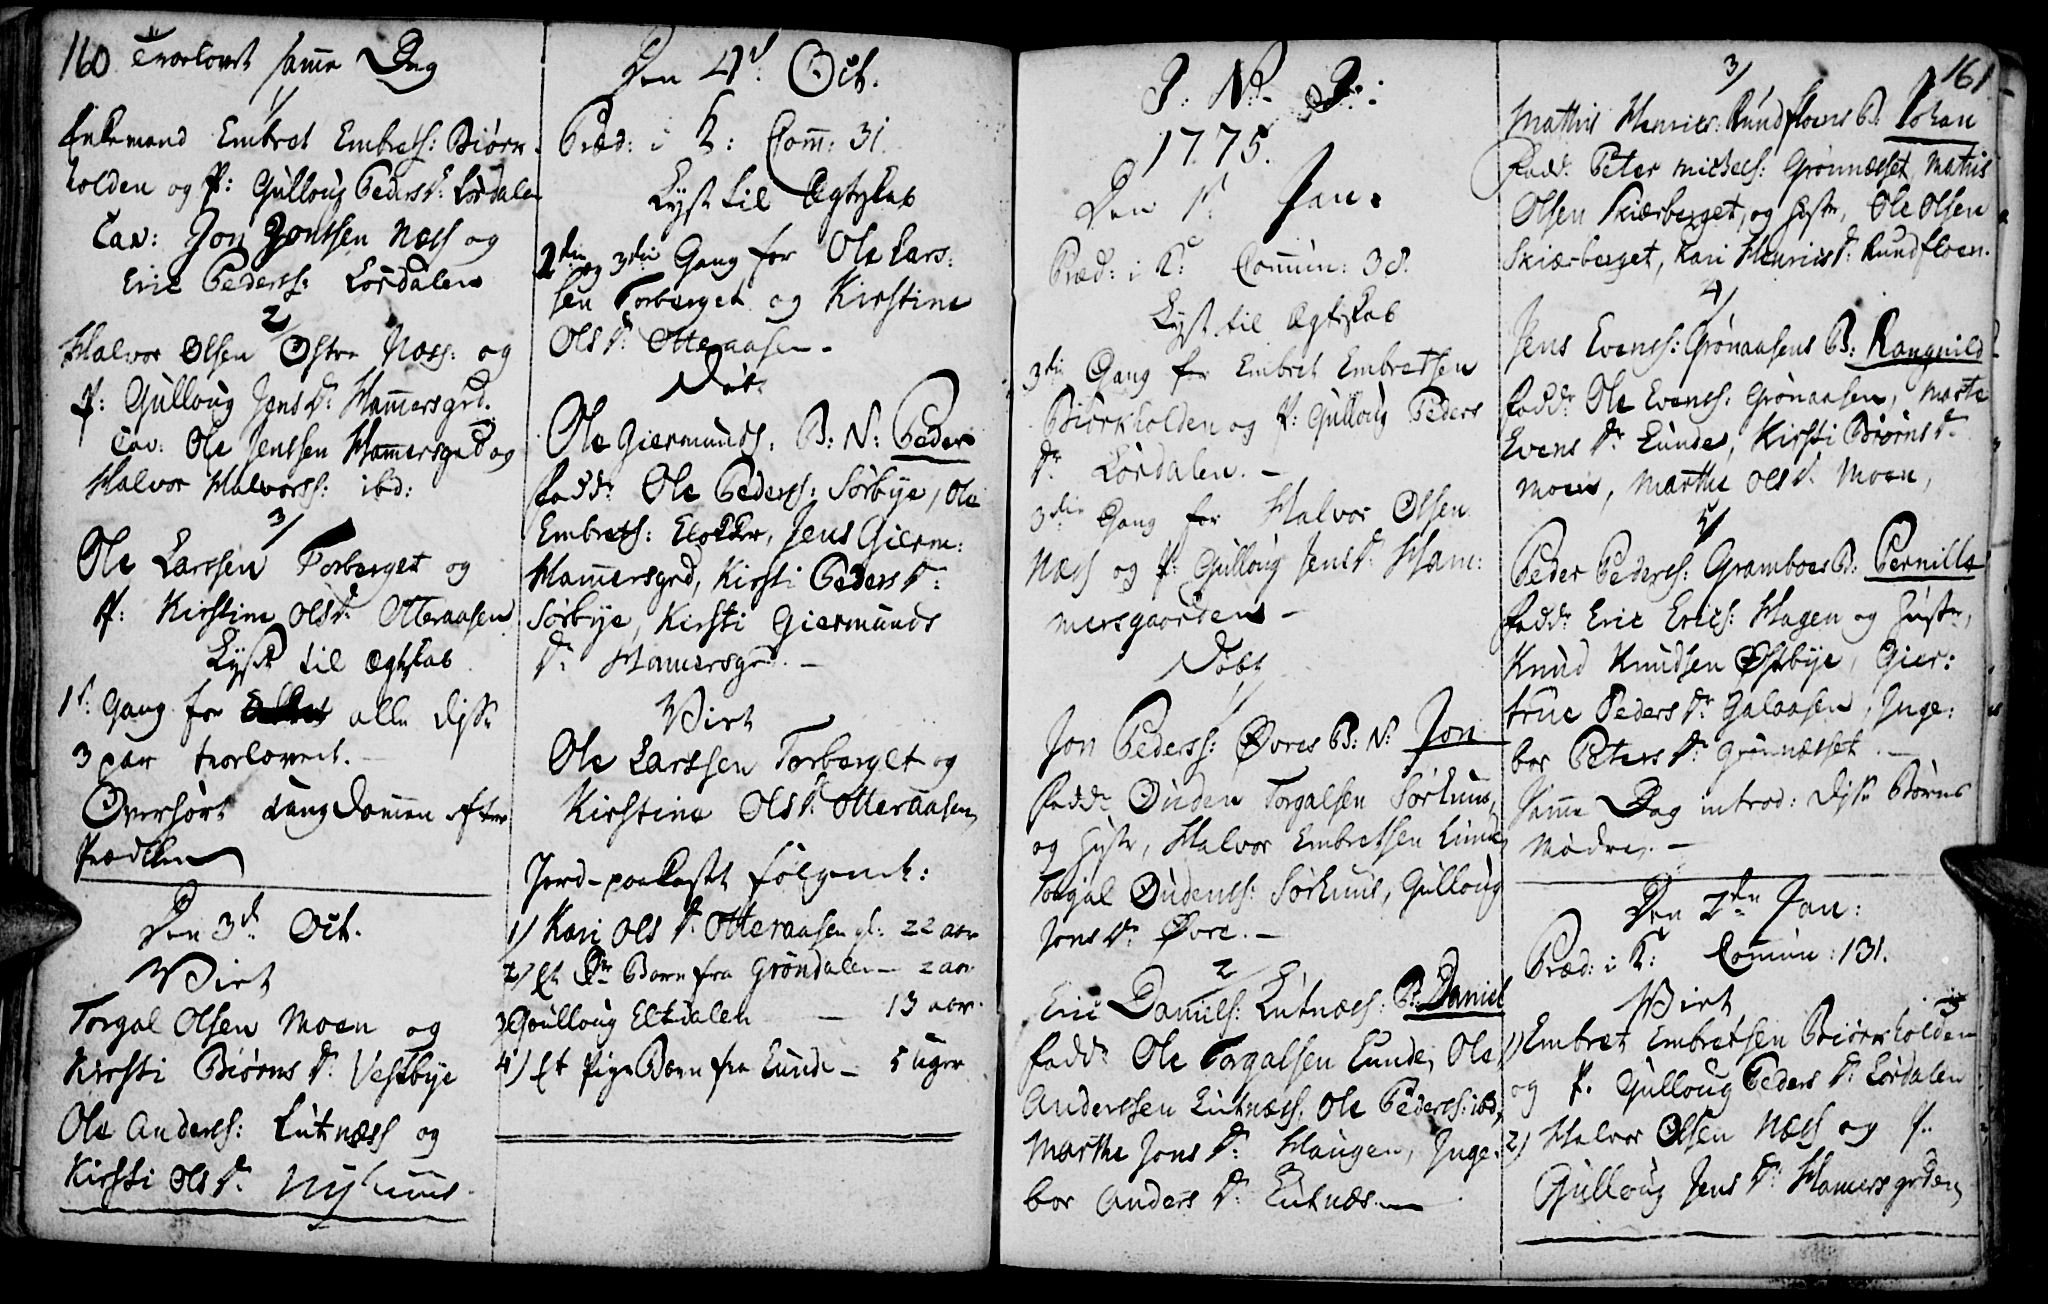 160 Troelovet samme Dag
1/
Enkemand Embret Embretss: Biørk-
holden og P: Gulloug Peders Dr. Lördalen
Cav: Jon Jontsen Næss og
Eric Pederss: Lördalen
2/
Halvor Olsen Østre Næss: og
P: Gulloug Jens Dr. Hammersgrd.
Cav: Ole Jenssen Hammersgrd og
Halvor Halvorss: ibd:
3/
Ole Larssen Torberget og
P: Kirstine Ols Dr. Otteraasen
Lyst til Ægtskab
1st. Gang for alle disse
3 par troelovede.
Overhørt Ungdommen efter
Prædiken
Den 3d. Oct.
Viet
Torgal Olsen Moen og
Kirsti Biørns Dr. Vestbye
Ole Anderss: Lutnæss og
Kirsti Ols Dr. Nyhuus.
Den 4d. Oct.
Præd: i K: Com: 31.
Lyst til Ægtskab
2den og 3die Gang for Ole Lars:
sen Torberget og Kirstine
Ols Dr. Otteraasen.
Døbt
Ole Giermunds: B: N: Peder
Fadd: Ole Pederss: Sørbye, Ole
Embretss: Elokker, Jens Gierm:
Hammersgrd, Kirsti Peders Dr:
Sørbye, Kirsti Giermunds
Dr. Hamersgrd. -
Viet
Ole Larssen Torberget og
Kirstine Ols Dr. Otteraasen
Jord-paakastet følgende:
1) Kari Ols Dr. Otteraasen gl: 22 aar
2) Et Barn fra Gröndalen - 2 aar
3) Goulloug Eltdalen - 13 aar.
4) Et Pige Barn fra Lunde - 5 uger
J: N: J:
1775.
Den 1st. Jan.
Præd: i K: Comun: 38.
Lyst til Ægtskab
3die Gang for Embret Embretsen
Biörkholden og P: Gulloug Peders
Dr Lördalen. -
3die Gang for Halvor Olsen
Næss og P: Gulloug Jens Dr. Ham:
mersgaarden -
Døbt
1/
Jon Pederss: Øvres B: N: Jon
Fadd: Ouden Torgalsen Sörhuus,
og Hustr, Halvor Embretsen Lunde
Torgal Oudenss: Sørhuus, Gulloug
Jons Dr. Øvre. -
2/
Eric Daniels: Lutnæss: B: Daniel
Fadd: Ole Torgalsen Lunde, Ole
Anderssen Lutnæss. Ole Pederss: ibd,
Marthe Jons Dr: Haugen, Inge-
bor Anders Dr. Lutnæs.
161.
3/
Mathis Henrics: Rundfloens B: Johan
Fadd: Peter Michels: Grönnæsset, Mathis
Olsen Skiærberget, og Hustr, Ole Olsen
Skiærberget, Kari Henrics Dr. Rundfloen.
4/
Jens Evenss: Grönaasens B: Rangnild
Fadd: Ole Evenss: Grönaasen, Marte
Evens Dr. Lunde, Kirsti Biörns Dr.
Moen, Marthe Ols Dr. Moen,
5/
Peder Pederss: Gramboes B: Pernille
Fadd: Eric Erics: Hagen og Hustr,
Knud Knudsen Østbye, Gier:
true Peders Dr Galaasen, Inge:
bor Peters Dr Grönnæsset. -
Samme Dag introd: disse Børns
Mødre. -
Den 2den Jan:
Præd: i K: Comun: 131.
Viet
1) Embret Embretsen Biörkholden
og P. Gulloug Peders Dr. Lördalen
2) Halvor Olsen Næss og P.
Gulloug Jens Dr: Hamersgrden,